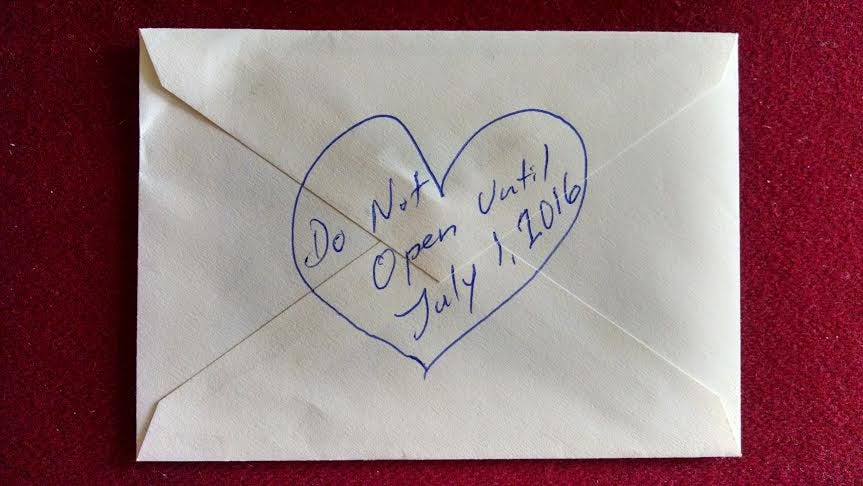 Do Not
Open Until
July 1, 2016